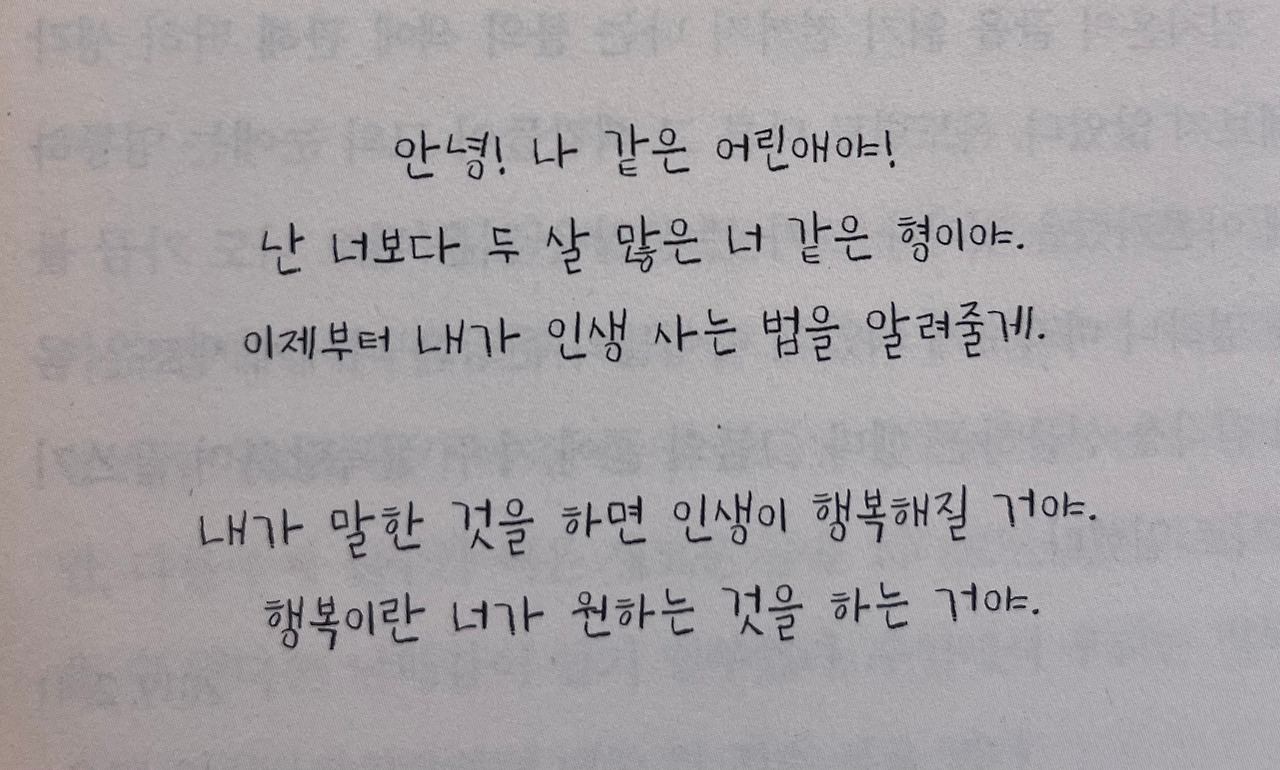 안녕! 나 같은 어린애야!
난 너보다 두 살 많은 너 같은 형이야.
이제부터 내가 인생 사는 법을 알려줄게.
내가 말한 것을 하면 인생이 행복해질 거야.
행복이란 너가 원하는 것을 하는 거야.